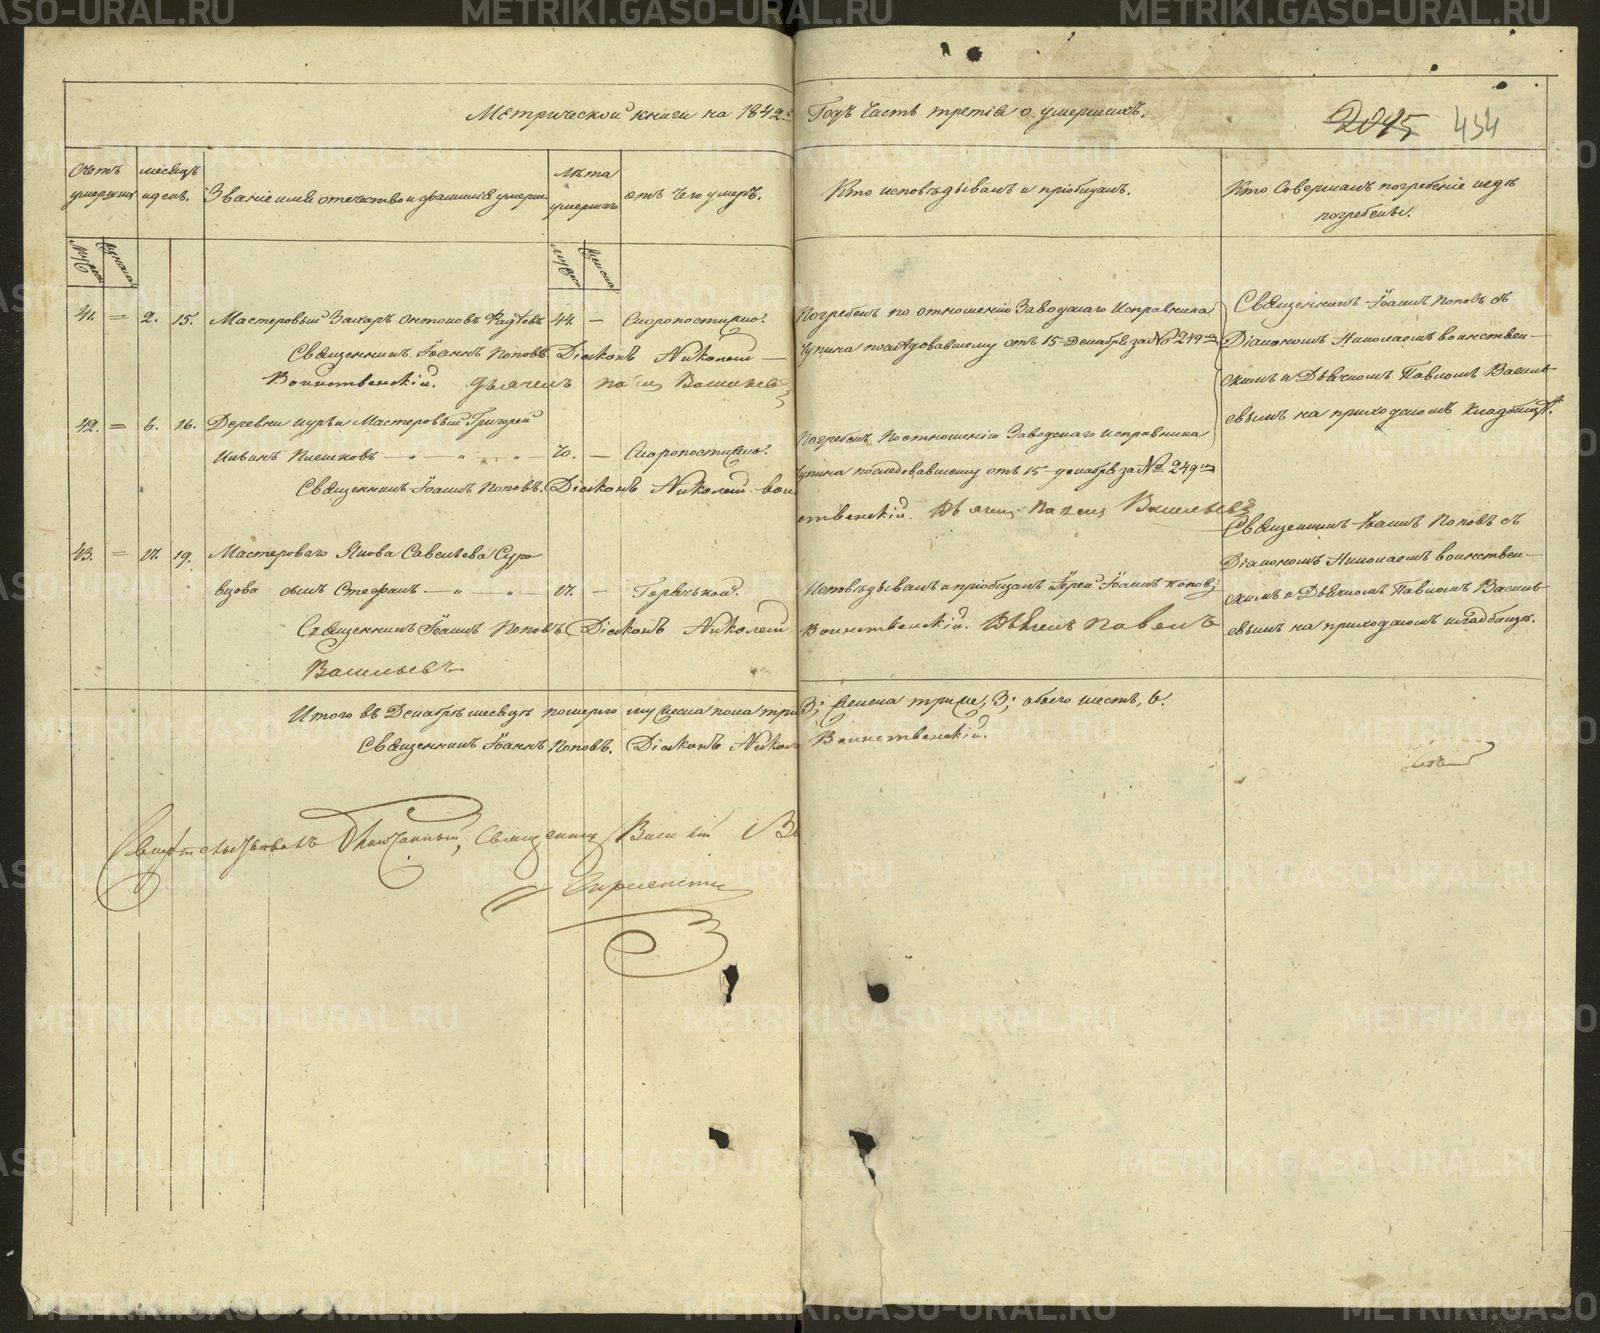 Метрической книги на 1842й Годъ Часть третія о умершихъ.
2045 434
Счетъ умершихъ
месяцъ и день.
Званіе имя отечество и фамилія умерш
Лѣта умершаго
отъ чего умеръ.
Кто исповѣдывалъ и пріобщалъ.
Кто Совершалъ погребеніе и гдѣ погребены.
41. = 2. 15. Мастеровый Захаръ Онтоновъ Фадѣевъ 44. — Скоропостижно. Погребенъ по отношенію Заводскаго Исправника
послѣдовавшему отъ 15 декабря за № 249м
Священникъ Іоаннъ Поповъ Діаконъ Николай
Воинственскій. Дьячекъ Павелъ Васильевъ
Священникъ Іоаннъ Поповъ съ
Діакономъ Николаемъ воинствен—
скимъ и Дьячкомъ Павломъ Василь—
евымъ на приходскомъ кладбищѣ.
42. = 6. 16. Деревни Мастеровый Григорій
— „ — „ — 70. — Скоропостижно. Погребенъ по отношенію Заводскаго исправника
последовавшему отъ 15 декабря за № 249м
Священникъ Іоаннъ Поповъ. Діаконъ Николай воин
ственскій. Дьячекъ Павелъ Васильевъ
43. = 17. 19. Мастероваго Якова Савельева Суро
вцова сынъ Стефанъ — „ — „ — 17. — Горячькой. Исповѣдывалъ и пріобщалъ Іерей Іоаннъ Поповъ
Священникъ Іоаннъ Поповъ Діаконъ Николай Воинственскій. Дьячекъ Павелъ
Васильевъ
Священникъ Іоаннъ Поповъ съ
Діакономъ Николаемъ воинствен—
скимъ и Дьячкомъ Павломъ Василь—
евымъ на приходскомъ кладбищѣ.
Итого въ Декабрѣ месяцѣ померло мужеска пола три 3; женска три же, 3; обоего шесть, 6.
Священникъ Іоаннъ Поповъ. Діаконъ Никол Воинственскій.
Свидѣтельствовалъ Благочинный, Священникъ Василій
METRIKI.GASO-URAL.RU